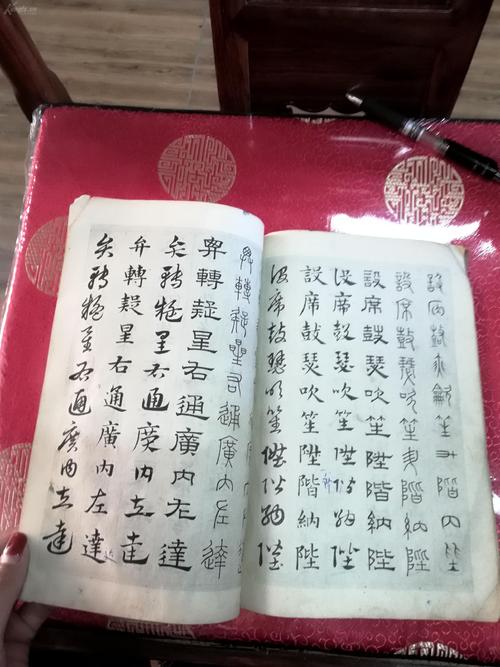 設席鼓瑟吹笙升階內陛
設席鼓瑟吹笙升階納陛
設席鼓瑟吹笙陞階納陛
設席鼓瑟吹笙陞階納陛
設席鼓瑟吹笙陞階納陛
設席鼓瑟吹笙陞階納陛
弁轉疑星右通廣內左達
弁轉疑星右通廣內左達
弁轉疑星右通廣內左達
弁轉疑星右通廣內左達
弁轉疑星右通廣內左達